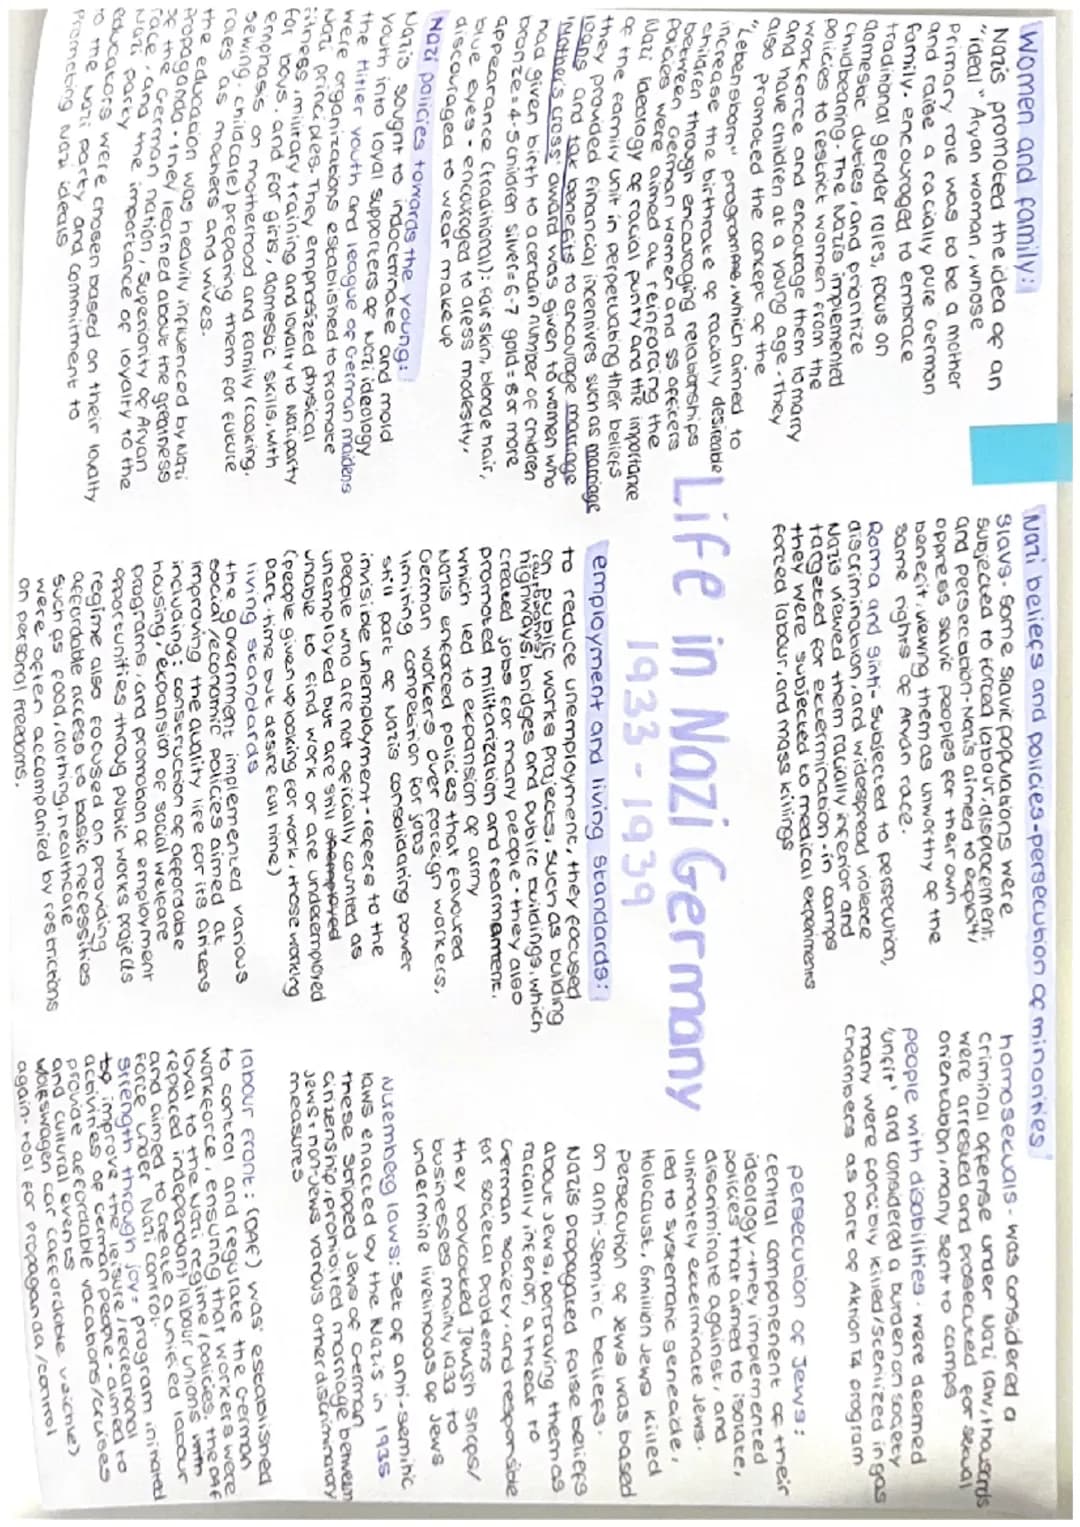 Women and family:
Nazis promoted the idea of an
"ideal" Aryan woman, whose
primary role was to be a mother
and raise a racially pure German
family. encouraged to embrace
traditional gender roles, focus on
domestic duties, and prioritize
childbearing. The Nazis implemented
policies to restrict women from the
workforce and encourage them to marry
and have children at a young age. They
also promoted the concept of the
"Lebensborn" programme, which aimed to
increase the birthrate of racially desireable
children through encouraging relationships
between German women and SS officers
Policies were aimed at reinforcing the
Nazi ideology of racial purity and the importance
of the family unit in perpetuating their beliefs
they provided financial incentives such as marriage
loans and tax benefits to encourage marriage
Mother's cross: award was given to women who
had given birth to a certain number of children
bronze = 4-5 children silver = 6-7 gold = 8 or more
appearance (traditional): fair skin, blonde hair,
blue eyes - encouraged to dress modestly,
discouraged to wear makeup
Nazi policies towards the young:
Nazis sought to indoctrinate and mold
youth into loyal supporters of Nazi ideology
the Hitler youth and league of German maidens
were organizations established to promote
Nazi principles. They emphasized physical
fitness, military training and loyalty to Nazi party
for boys, and for girls, domestic skills, with
emphasis on motherhood and family (cooking,
sewing, childcare) preparing them for future
roles as mothers and wives.
the education was heavily influenced by Nazi
propaganda. They learned about the greatness
of the German nation, superiority of Aryan
race, and the importance of loyalty to the
Nazi party
educators were chosen based on their loyalty
to the Nazi party and commitment to
promoting Nazi ideals
Life in Nazi Germany
1933-1939
Nazi beliefs and policies-persecution of minorities
Slavs. Some slavic populations were
subjected to forced labour, displacement,
and persecution. Nazis aimed to exploit/
oppress slavic peoples for their own
benefit, viewing them as unworthy of the
same rights of Aryan race.
Roma and Sinti- subjected to persecution,
discrimination, and widespread violence
Nazis viewed them racially inferior and
targeted for extermination. in camps
they were subjected to medical experiments
forced labour, and mass killings
homosexuals - was considered a
criminal offense under Nazi law, thousands
were arrested and prosecuted for sexual
orientation, many sent to camps
people with disabilities - were deemed
'unfit' and considered a burden on society
many were forcibly killed/ in gas
chambers as part of Aktion T4 program
employment and living standards:
to reduce unemployment, they focused
on public works projects, such as building
(autobahns)
highways, bridges and public buildings, which
created jobs for many people. they also
promoted militarization and rearmament,
which led to expansion of army
Nazis enforced policies that favoured
German workers over foreign workers,
limiting competition for jobs
still part of Nazis consolidating power
invisible unemployment - refers to the
people who are not officially counted as
unemployed but are still
unable to find work or are underemployed
(people given up looking for work, those working
part-time but desire full time)
living standards
the government implemented various
social/economic policies aimed at
improving the quality life for its citizens
including: construction of affordable
housing, expansion of social welfare
programs, and promotion of employment
opportunities throug public works projects
regime also focused on providing
affordable access to basic necessities
such as food, clothing, healthcare
were often accompanied by restrictions
on personal freedoms.
persecution of Jews:
central component of their
ideology. they implemented
policies that aimed to isolate,
discriminate against, and
ultimately exterminate Jews.
led to systematic genocide,
Holocaust, 6 million Jews killed
Persecution of Jews was based
on anti-semitic beliefs.
Nazis propagated false beliefs
about Jews, portraying them as
racially inferior, a threat to
German society, and responsible
for societal problems
they boycotted Jewish shops/
businesses mainly 1933 to
undermine livelihoods of Jews
Nuremberg laws: set of anti-semitic
laws enacted by the Nazis in 1935
these stripped Jews of German
citizenship, prohibited marriage between
Jews + non-Jews various other discriminatory
measures
labour front: (DAF) was established
to control and regulate the German
workforce, ensuring that workers were
loyal to the Nazi regime/policies. the DAF
replaced independant labour unions with
and aimed to create a unified labour
force under Nazi control.
strength through joy = program initiated
to improve the leisure/recreational
activities of German people - aimed to
provide affordable vacations/cruises
and cultural events
Volkswagen car (affordable vechile)
again. tool for propaganda/control